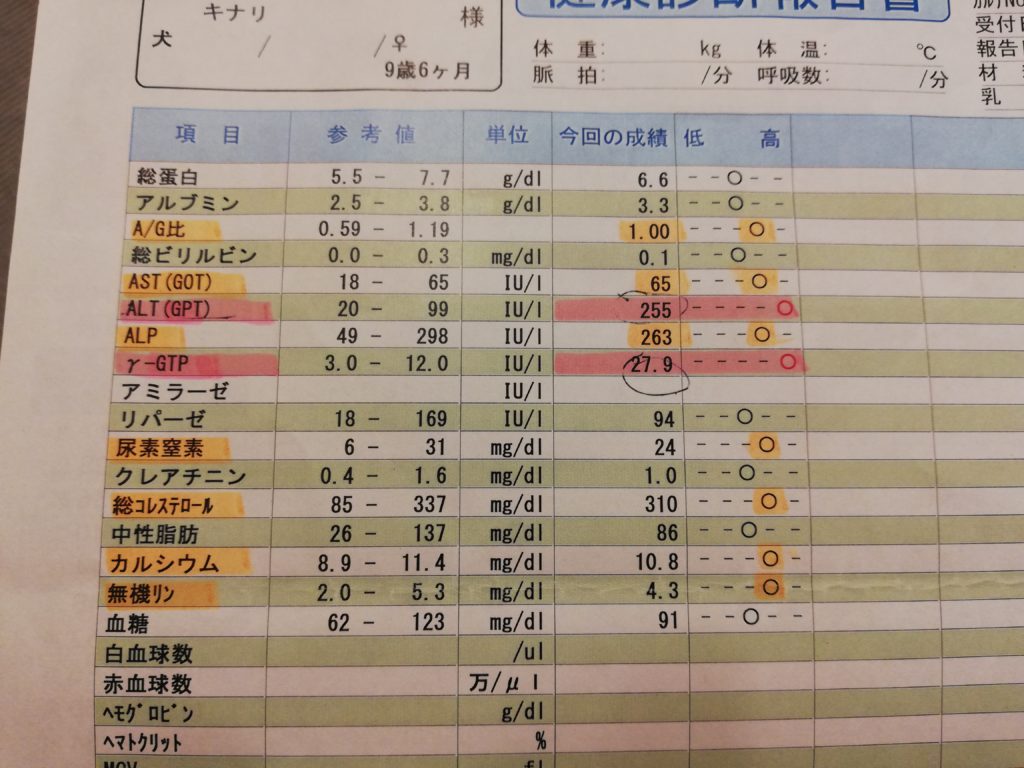 キナリ 様
犬 / /♀
9歳6ヶ月
健康診断報告書
体 重: kg 体 温: ℃
脈 拍: /分 呼吸数: /分
受付日
報告
材
乳
項 目 参 考 値 単位 今回の成績 低 高
総蛋白 5.5 - 7.7 g/dl 6.6 --○--
アルブミン 2.5 - 3.8 g/dl 3.3 --○--
A/G比 0.59 - 1.19 1.00 ---○-
総ビリルビン 0.0 - 0.3 mg/dl 0.1 --○--
AST(GOT) 18 - 65 IU/l 65 ---○-
ALT(GPT) 20 - 99 IU/l 255 ----○
ALP 49 - 298 IU/l 263 ---○-
γ-GTP 3.0 - 12.0 IU/l 27.9 ----○
アミラーゼ IU/l
リパーゼ 18 - 169 IU/l 94 --○--
尿素窒素 6 - 31 mg/dl 24 ---○-
クレアチニン 0.4 - 1.6 mg/dl 1.0 --○--
総ｺﾚｽﾃﾛｰﾙ 85 - 337 mg/dl 310 ---○-
中性脂肪 26 - 137 mg/dl 86 --○--
カルシウム 8.9 - 11.4 mg/dl 10.8 ---○-
無機ﾘﾝ 2.0 - 5.3 mg/dl 4.3 ---○-
血糖 62 - 123 mg/dl 91 --○--
白血球数 /ul
赤血球数 万/μl
ﾍﾓｸﾞﾛﾋﾞﾝ g/dl
ﾍﾏﾄｸﾘｯﾄ %
MCV fl